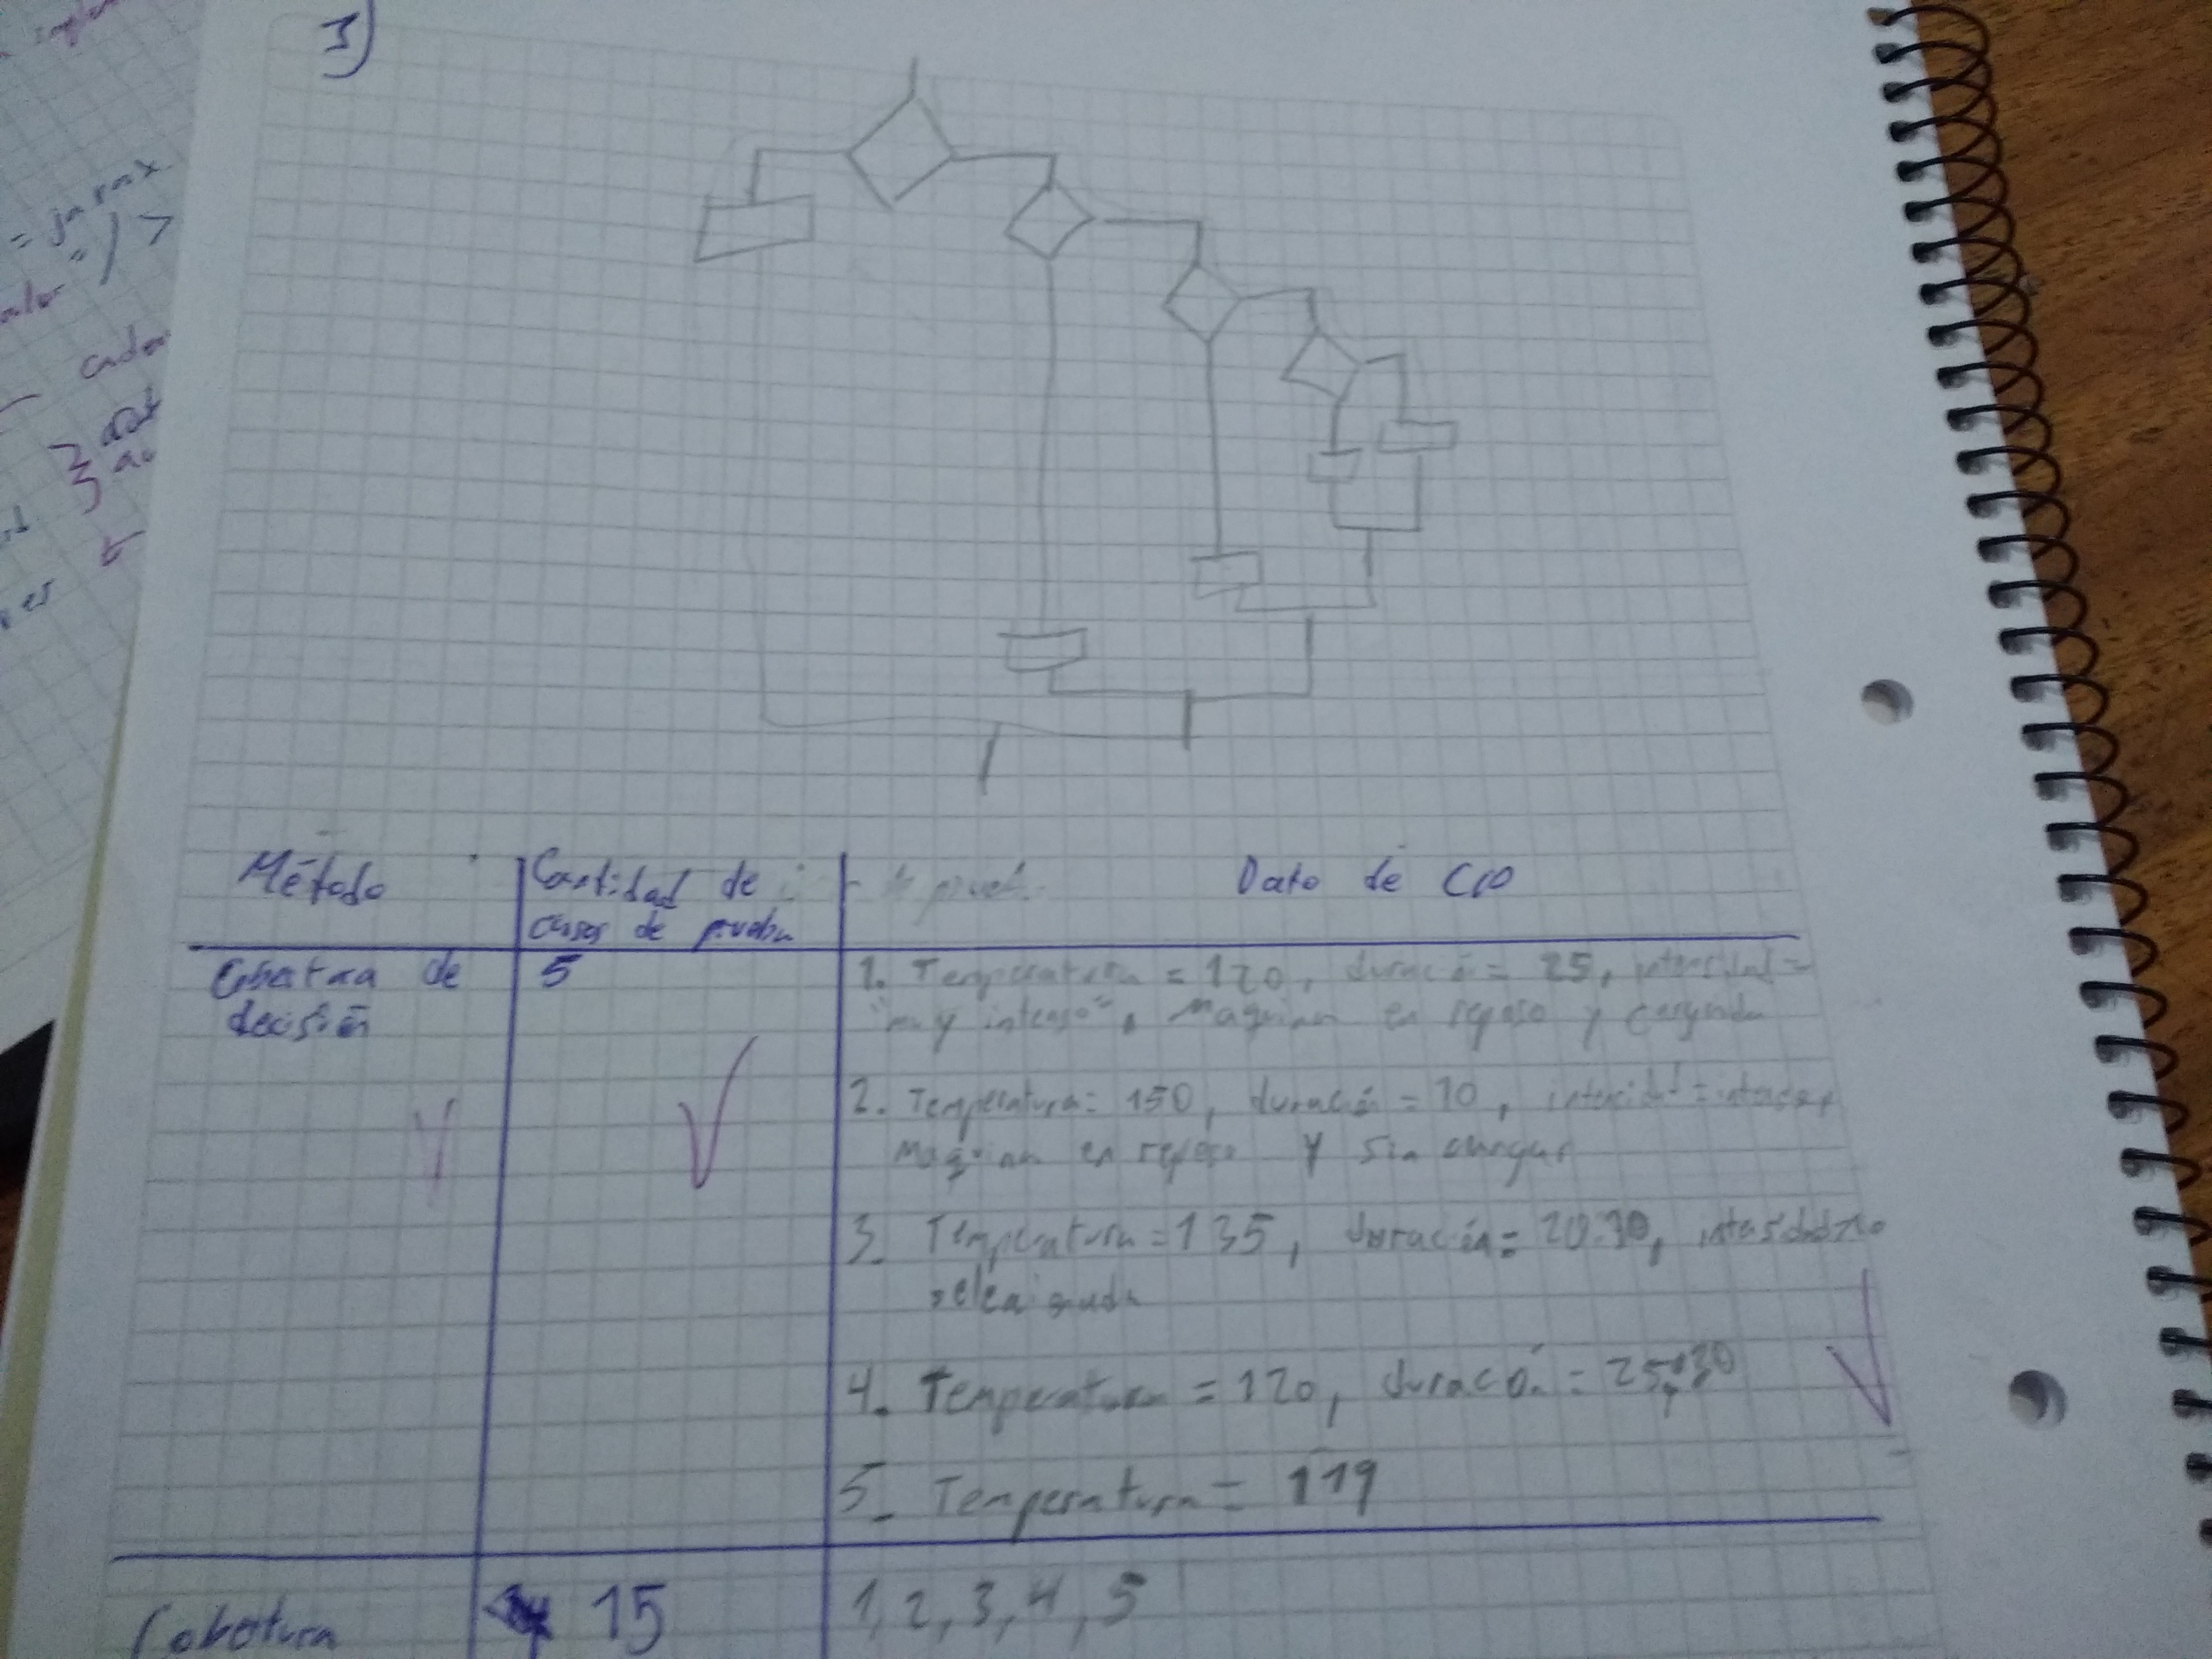 3)
= jarax
cada
Método
Cantidad de
casos de prueba
Dato de CP
Cobertura de
decisión
5
1. Temperatura = 120, duración = 25, intensidad =
"muy intenso", Maquina en reposo y cargada
2. Temperatura = 150, duración = 10, intensidad = intenso,
Maquina en reposo y sin cargar
3. Temperatura = 135, duración = 20:30, intensidad no
seleccionada
4. Temperatura = 120, duración =
5. Temperatura = 119
Cobertura
15
1, 2, 3, 4, 5